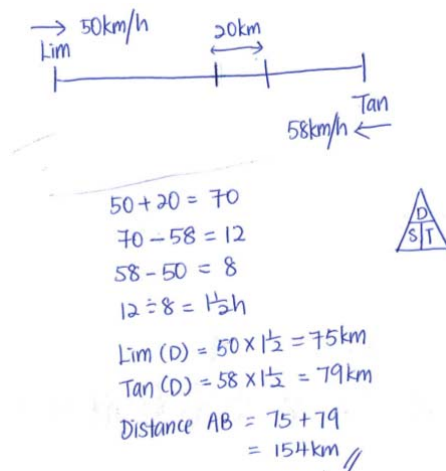 → 50km/h
20km
Lim
Tan
58km/h ←
50 + 20 = 70
70 - 58 = 12
58 - 50 = 8
12 ÷ 8 = 1 1/2 h
D
S T
Lim (D) = 50 × 1 1/2 = 75km
Tan (D) = 58 × 1 1/2 = 79km
Distance AB = 75 + 79
= 154km //